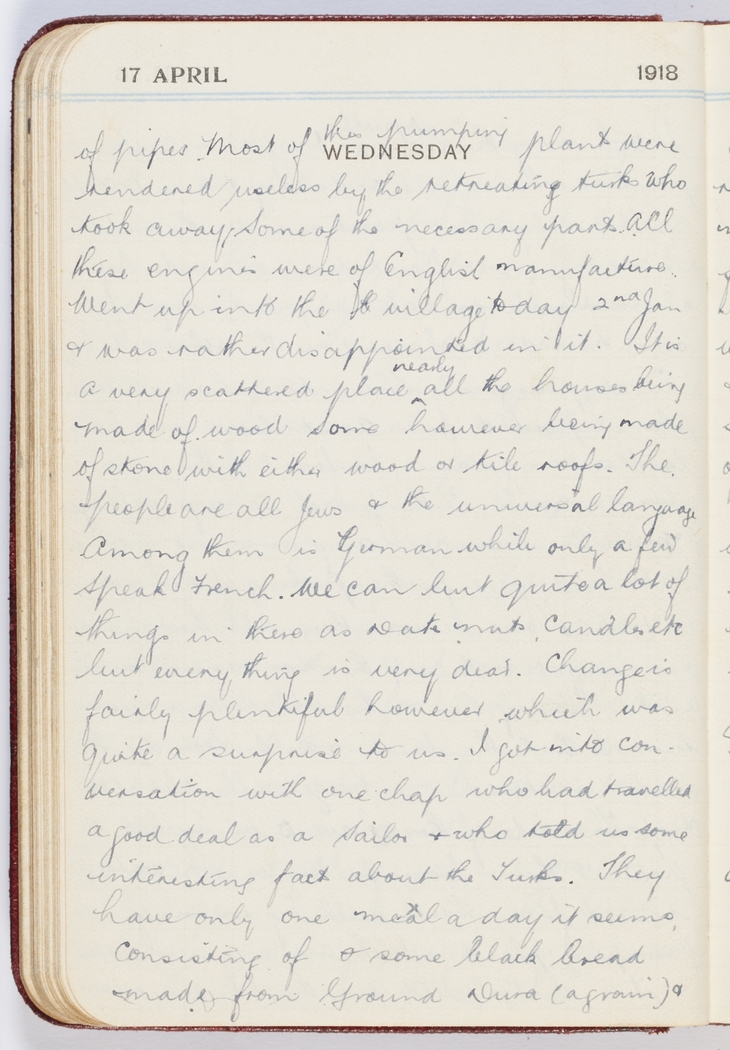 17 APRIL 1918
WEDNESDAY
of pipes. Most of this pumping plant were
rendered useless by the retreating turks who
took away some of the necessary parts. All
these engines were of English manufacture.
Went up into the village today 2nd Jan
& was rather disappointed in it. It is
a very scattered place nearly all the houses being
made of wood some however being made
of stone with either wood or tile roofs. The
people are all Jews & the universal language
among them is German while only a few
speak French. We can but quite a lot of
things in there as Date nuts, Candles etc
but every thing is very dear. Change is
fairly plentiful however which was
quite a surprise to us. I got into con-
versation with one chap who had travelled
a good deal as a sailor & who told us some
interesting fact about the Turks. They
have only one meal a day it seems,
consisting of some black bread
made from Ground Dura (a grain) &